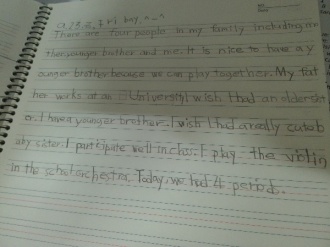 There are four people in my family including m
ther younger brother and me. It is nice to have a y
ounger brother becase we can play together. My fat
her works at an University I wish I had an older sist
er. I have a younger brother. I wish I had a really cute b
aby sister. I participate well in I play the violin
in the orchestra. Today, we had 4 period.